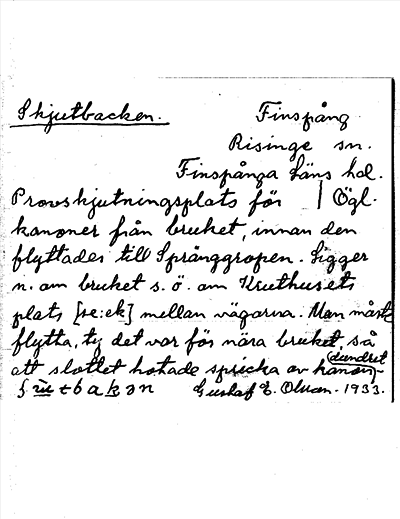 Skjutbacken.
Finspång
Risinge sn.
Finspånga läns hd.
Provskjutningsplats för | Ögl.
kanoner från bruket, innan den
flyttades till Språnggropen. Ligger
n. om bruket s. ö. om Kruthusets
plats [se: ek] mellan vägarna. Man måste
flytta, ty det var för nära bruket så
att slottet hotade spricka av kanon-
dundret
Gustaf E. Olsson. 1933.